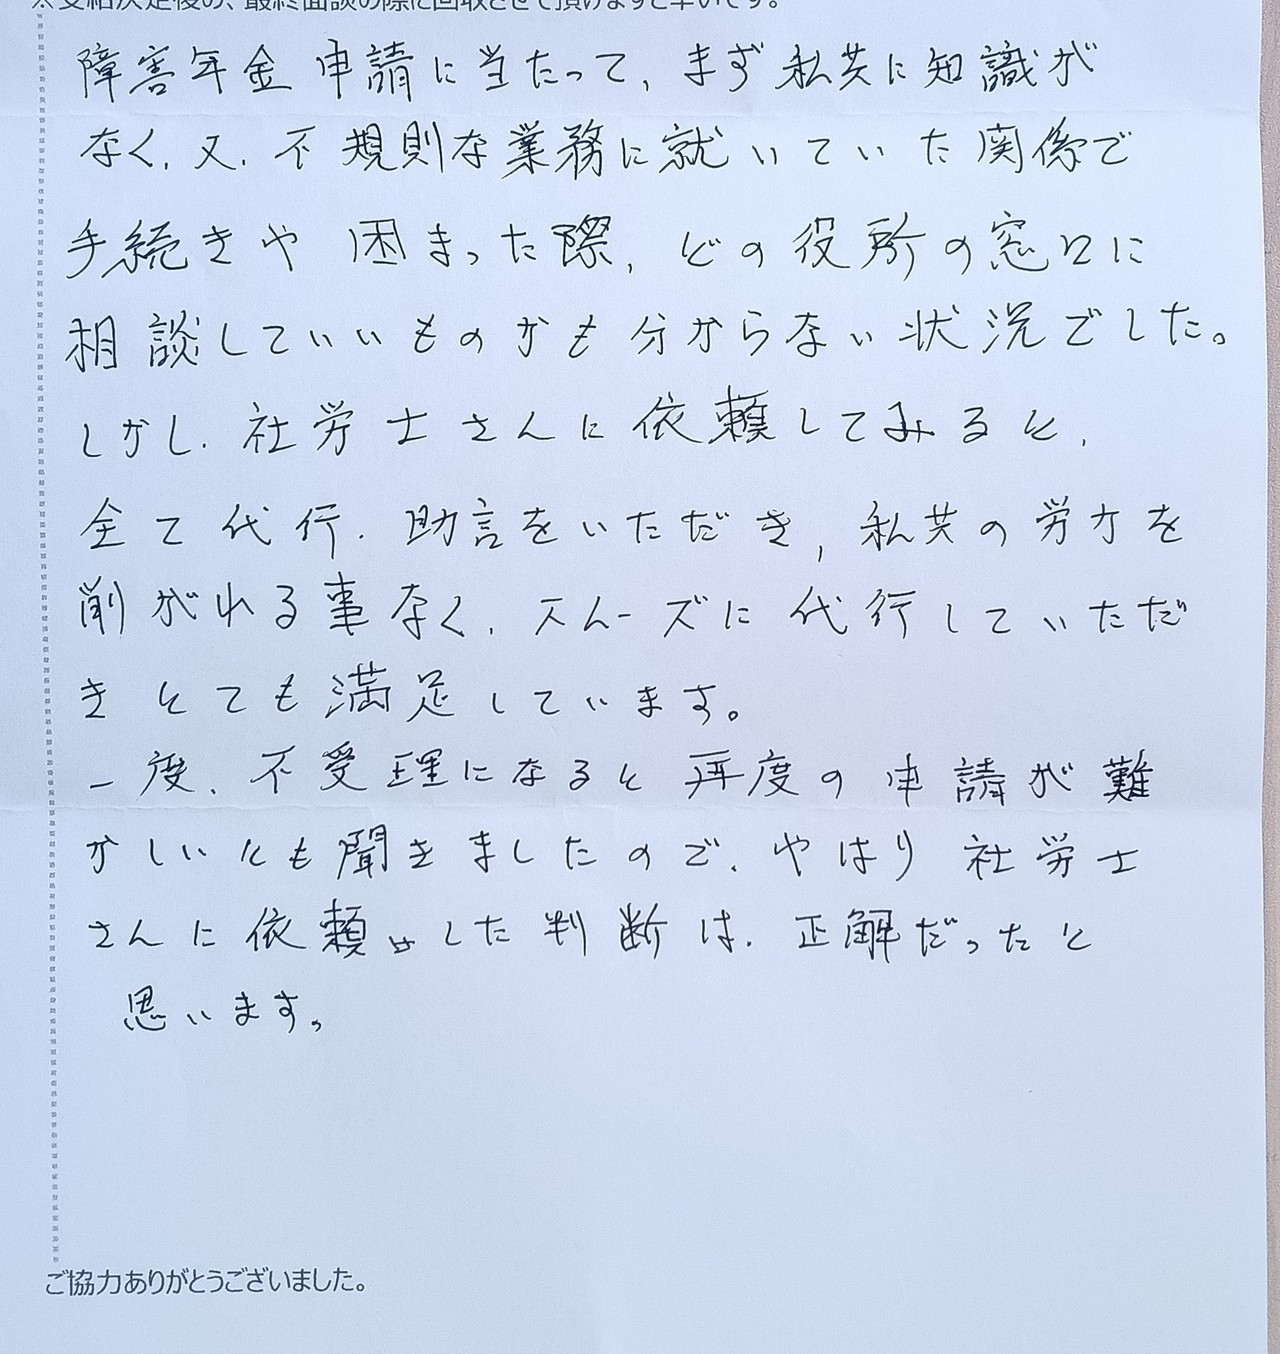 ※支給決定後の、最終面談の際に回収させて頂けますと幸いです。
障害年金申請に当たって、まず私共に知識が
なく、又、不規則な業務に就いていた関係で
手続きや困まった際、どの役所の窓口に
相談していいものかも分からない状況でした。
しかし、社労士さんに依頼してみると、
全て代行、助言をいただき、私共の労力を
削がれる事なく、スムーズに代行していただ
きとても満足しています。
一度、不受理になると再度の申請が難
かしいとも聞きましたので、やはり社労士
さんに依頼した判断は、正解だったと
思います。
ご協力ありがとうございました。